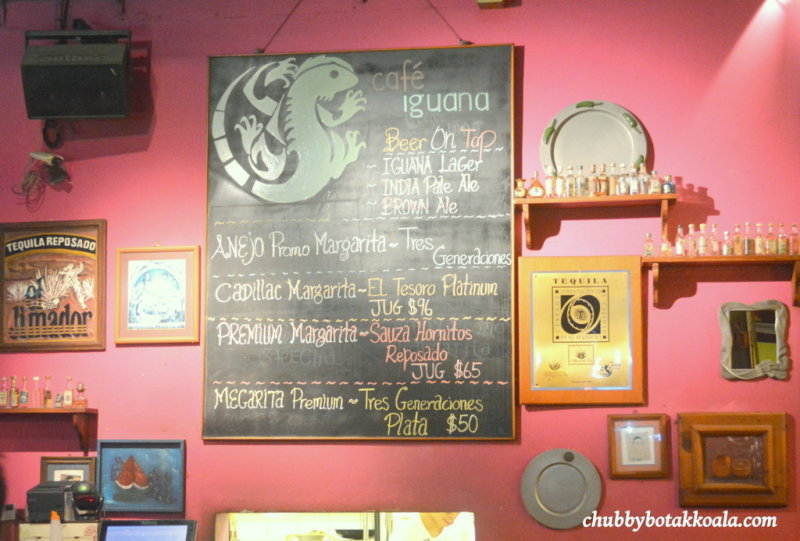 café
iguana
Beer On Tap
IGUANA Lager
INDIA Pale Ale
BROWN Ale
ANEJO Promo Margarita ~ Tres
Generaciones
Cadillac Margarita ~ El Tesoro Platinum
JUG $96
PREMIUM Margarita ~ Sauza Hornitos
Reposado
JUG $65
MEGARITA Premium ~ Tres Generaciones
Plata $50
TEQUILA REPOSADO
el
Jimador
TEQUILA
chubbybotakkoala.com